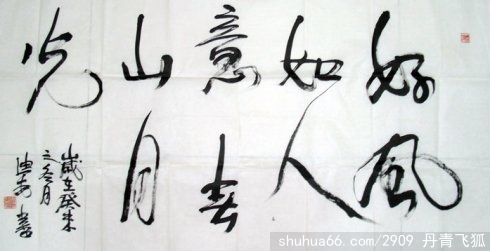 好風
如人
意春
山月
光
歲在癸未
之冬月
書
shuhua66.com/2909 丹青飞狐